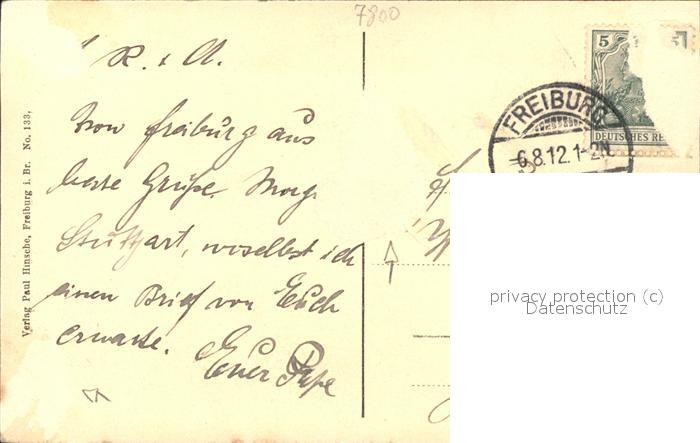 7800
R. & A.
Von Freiburg aus
beste Grüße. Morg.
Stuttgart, woselbst ich
einen Brief von Euch
erwarte.
Euer Pape
Verlag Paul Hinsche, Freiburg i. Br. No. 133.
5
DEUTSCHES RE
FREIBURG
6.8.12.1-2N
privacy protection (c)
Datenschutz